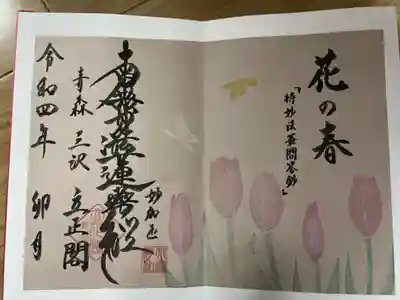 花の春
「持妙法華問答鈔」
南無妙法蓮華経
青森 三沢 立正閣
令和四年 卯月